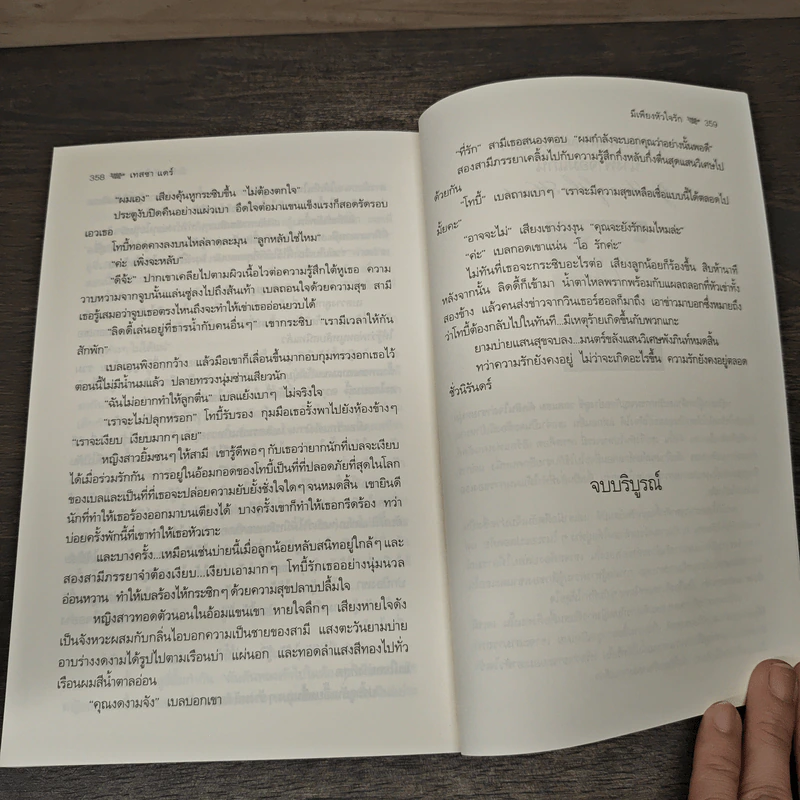 358 เทสซา แดร์
"ผมเอง" เสียงคุ้นหูกระซิบขึ้น "ไม่ต้องตกใจ"
ประตูงับปิดคืนอย่างแผ่วเบา อึดใจต่อมาแขนแข็งแรงก็สอดรัดรอบ
เอวเธอ
โทบี้ทอดคางลงบนไหล่ลาดละมุน "ลูกหลับใช่ไหม"
"ค่ะ เพิ่งจะหลับ"
"ดีจ้ะ" ปากเขาเคลียไปตามผิวเนื้อไวต่อความรู้สึกใต้หูเธอ ความ
วาบหวามจากจูบนั้นแล่นซู่ลงไปถึงส้นเท้า เบลถอนใจด้วยความสุข สามี
เธอรู้เสมอว่าจูบเธอตรงไหนถึงจะทำให้เข่าเธออ่อนยวบได้
"ลิดดี้เล่นอยู่ที่ธารน้ำกับคนอื่นๆ" เขากระซิบ "เรามีเวลาให้กัน
สักพัก"
เบลเอนพิงอกกว้าง แล้วมือเขาก็เลื่อนขึ้นมากอบกุมทรวงอกเธอไว้
ตอนนี้ไม่มีน้ำนมแล้ว ปลายทรวงนุ่มซ่านเสียวนัก
"ฉันไม่อยากทำให้ลูกตื่น" เบลแย้งเบาๆ ไม่จริงใจ
"เราจะไม่ปลุกหรอก" โทบี้รับรอง กุมมือเธอรั้งพาไปยังห้องข้างๆ
"เราจะเงียบ เงียบมากๆ เลย"
หญิงสาวยิ้มซนๆ ให้สามี เขารู้ดีพอๆ กับเธอว่ายากนักที่เบลจะเงียบ
ได้เมื่อร่วมรักกัน การอยู่ในอ้อมกอดของโทบี้เป็นที่ที่ปลอดภัยที่สุดในโลก
ของเบลและเป็นที่ที่เธอจะปล่อยความยับยั้งชั่งใจใดๆ จนหมดสิ้น เขายินดี
นักที่ทำให้เธอร้องออกมาบนเตียงได้ บางครั้งเขาก็ทำให้เธอกรีดร้อง ทว่า
บ่อยครั้งพักนี้ที่เขาทำให้เธอหัวเราะ
และบางครั้ง...เหมือนเช่นบ่ายนี้เมื่อลูกน้อยหลับสนิทอยู่ใกล้ๆ และ
สองสามีภรรยาจำต้องเงียบ...เงียบเอามากๆ โทบี้รักเธออย่างนุ่มนวล
อ่อนหวาน ทำให้เบลร้องไห้กระซิกๆ ด้วยความสุขปลาบปลื้มใจ
หญิงสาวทอดตัวนอนในอ้อมแขนเขา หายใจลึกๆ เสียงหายใจดัง
เป็นจังหวะผสมกับกลิ่นไอบอกความเป็นชายของสามี แสงตะวันยามบ่าย
อาบร่างงดงามได้รูปไปตามเรือนบ่า แผ่นอก และทอดลำแสงสีทองไปทั่ว
เรือนผมสีน้ำตาลอ่อน
"คุณงดงามจัง" เบลบอกเขา
มีเพียงหัวใจรัก 359
"ที่รัก" สามีเธอสนองตอบ "ผมกำลังจะบอกคุณว่าอย่างนั้นพอดี"
สองสามีภรรยาเคลิ้มไปกับความรู้สึกกึ่งหลับกึ่งตื่นสุดแสนวิเศษไป
ด้วยกัน
"โทบี้" เบลถามเบาๆ "เราจะมีความสุขเหลือเชื่อแบบนี้ได้ตลอดไป
มั้ยคะ"
"อาจจะไม่" เสียงเขาง่วงงุน "คุณจะยังรักผมไหมล่ะ"
"ค่ะ" เบลกอดเขาแน่น "โอ รักค่ะ"
ไม่ทันที่เธอจะกระซิบอะไรต่อ เสียงลูกน้อยก็ร้องขึ้น สิบห้านาที
หลังจากนั้น ลิดดี้ก็เข้ามา น้ำตาไหลพรากพร้อมกับแผลถลอกที่หัวเข่าทั้ง
สองข้าง แล้วคนส่งข่าวจากวินเธอร์ฮอลก็มาถึง เอาข่าวมาบอกซึ่งหมายถึง
ว่าโทบี้ต้องกลับไปในทันที...มีเหตุร้ายเกิดขึ้นกับพวกแกะ
ยามบ่ายแสนสุขจบลง...มนตร์ขลังแสนวิเศษพังภินท์หมดสิ้น
ทว่าความรักยังคงอยู่ ไม่ว่าจะเกิดอะไรขึ้น ความรักยังคงอยู่ตลอด
ชั่วนิรันดร์
จบบริบูรณ์